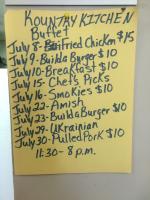 Kountry Kitchen
Buffet
July 8- Fried Chicken $15
July 9- Build a Burger $10
July 10- Breakfast $10
July 15- Chef's Picks
July 16- Smokies $10
July 22- Amish
July 23- Build a Burger $10
July 29- Ukrainian
July 30- Pulled Pork $10
11:30- 8 p.m.